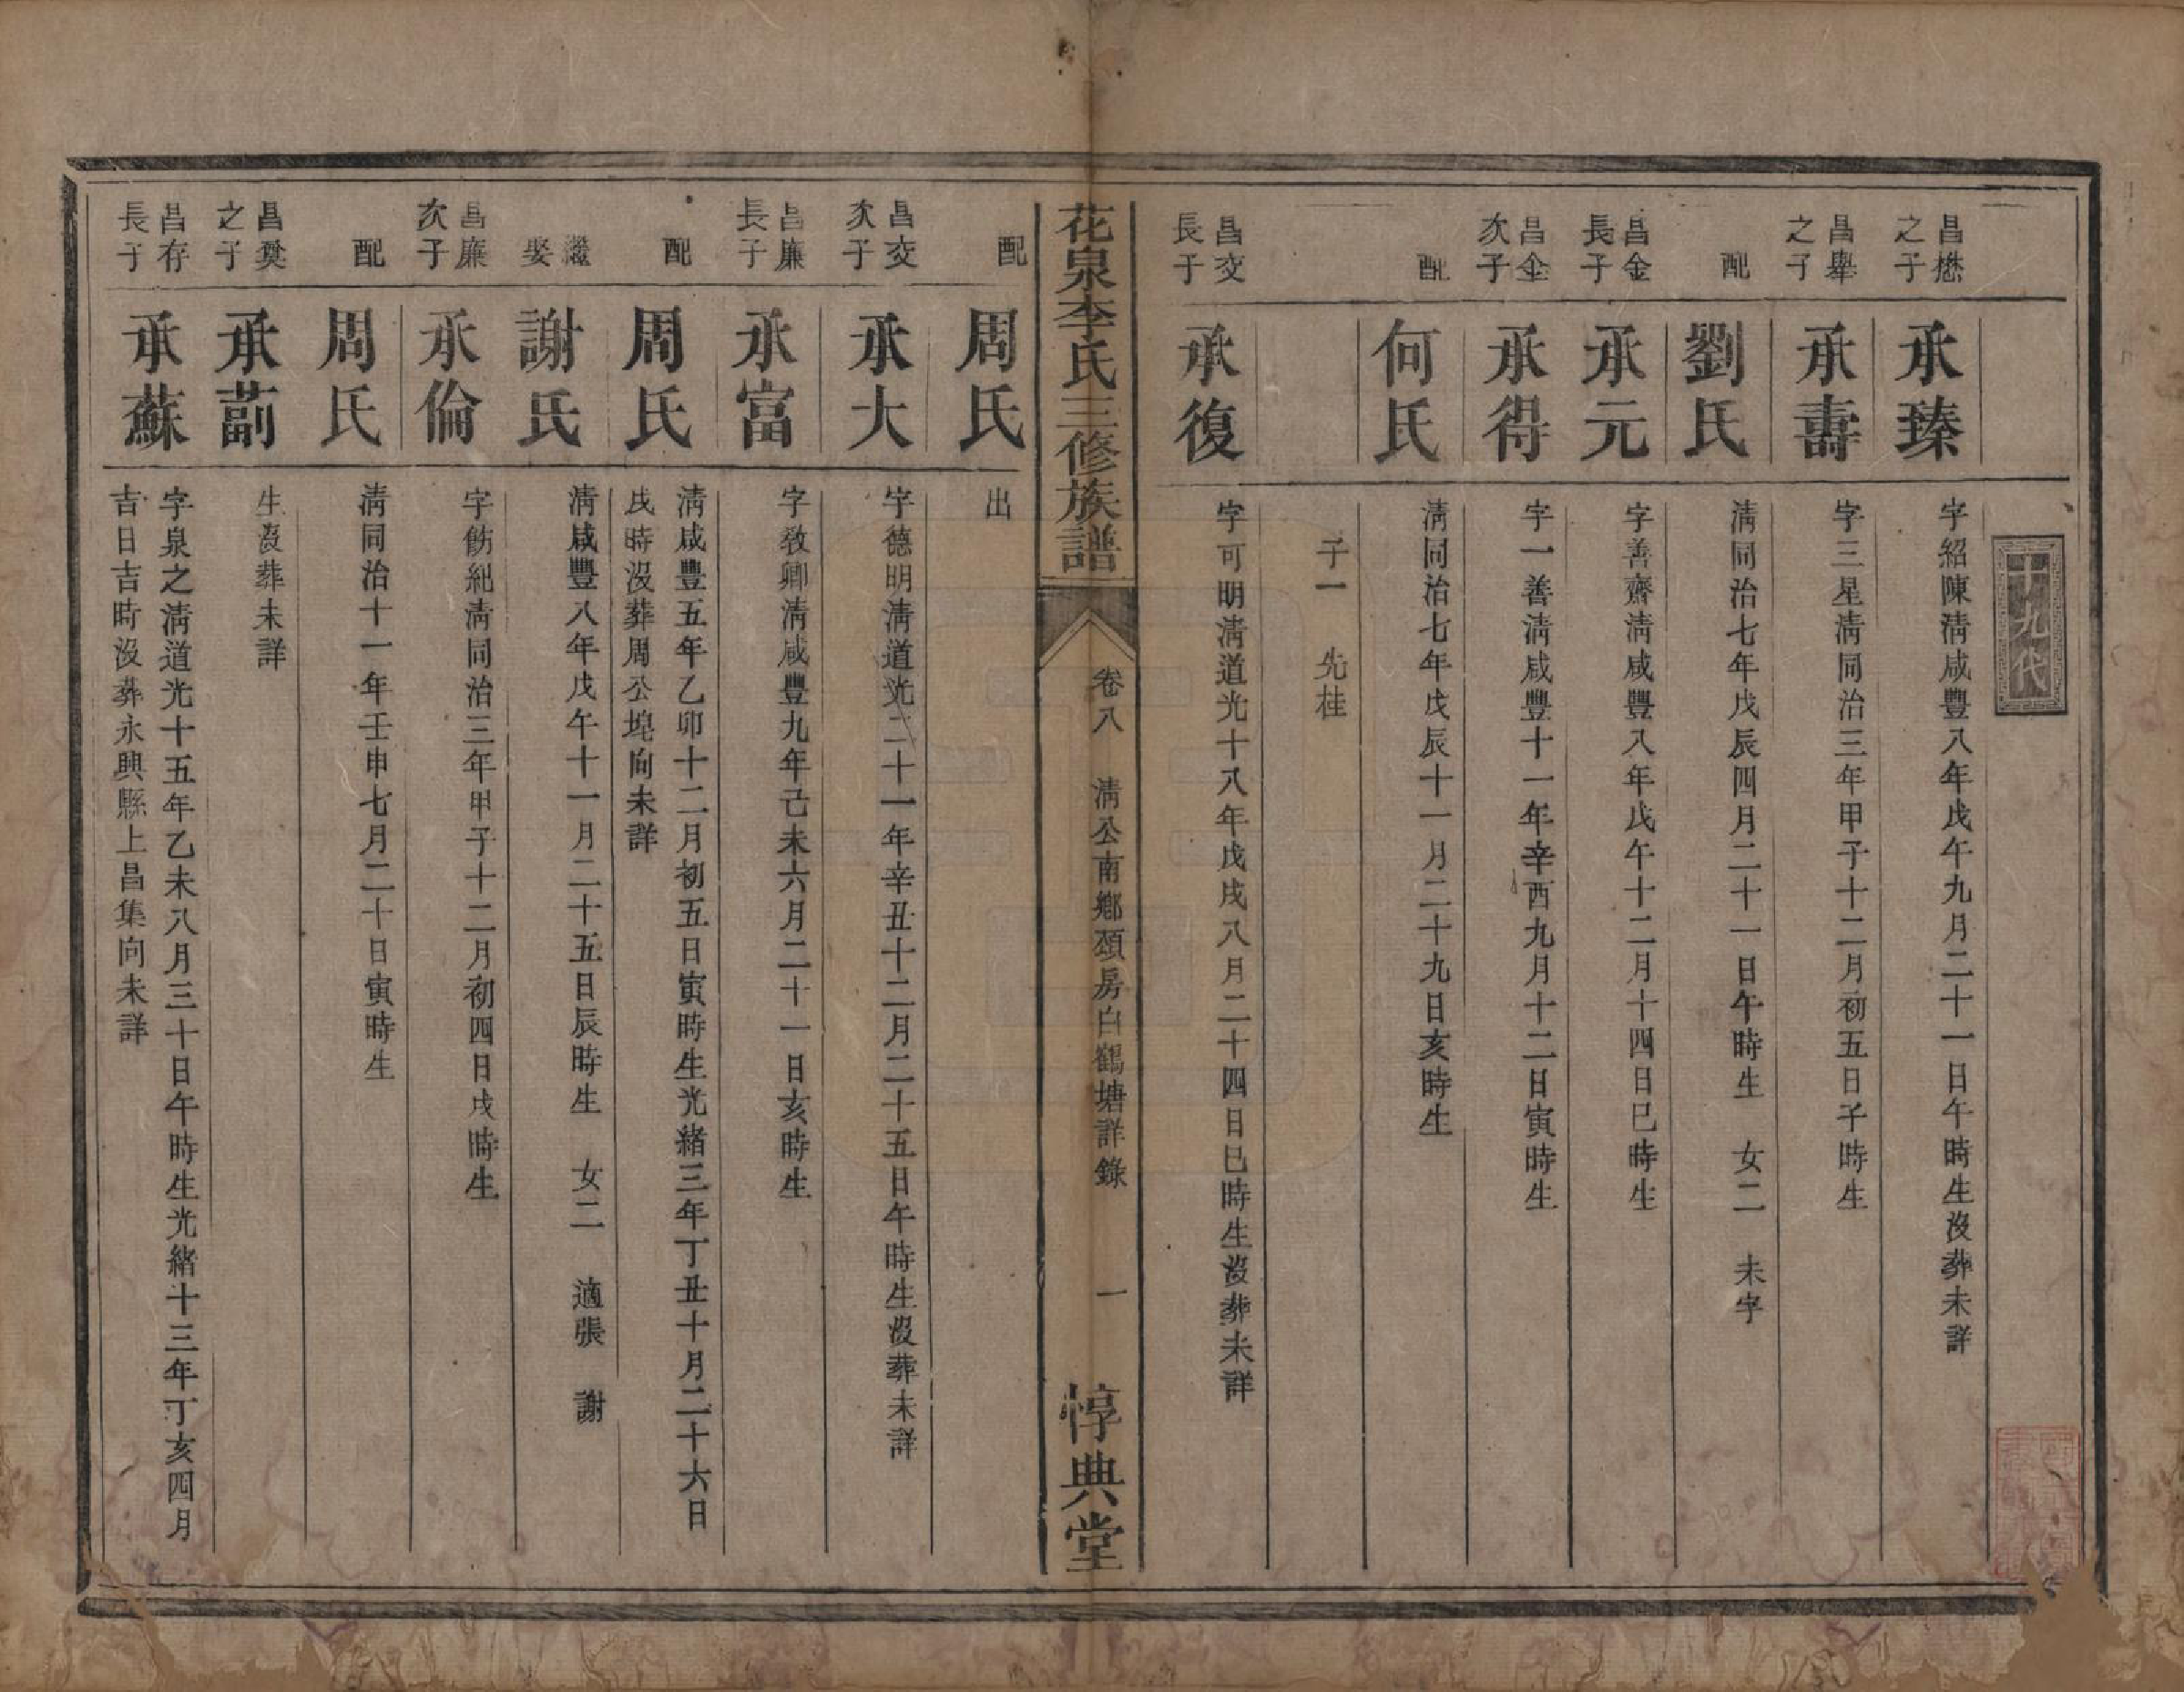 十九代
昌懋之子
承臻
字紹陳淸咸豐八年戊午九月二十一日午時生沒葬未詳
昌舉之子
承壽
字三星淸同治三年甲子十二月初五日子時生
配
劉氏
淸同治七年戊辰四月二十一日午時生 女二 未字
昌金長子
承元
字善齋淸咸豐八年戊午十二月十四日巳時生
昌金次子
承得
字一善淸咸豐十一年辛酉九月十二日寅時生
配
何氏
淸同治七年戊辰十一月二十九日亥時生
子一 先桂
昌交長子
承復
字可明淸道光十八年戊戌八月二十四日巳時生沒葬未詳
花泉李氏三修族譜
卷八 淸公南鄉頌房白鶴塘詳錄 一
惇典堂
配
周氏
出
昌交次子
承大
字德明淸道光二十一年辛丑十二月二十五日午時生沒葬未詳
昌廉長子
承富
字敎卿淸咸豐九年己未六月二十一日亥時生
配
周氏
淸咸豐五年乙卯十二月初五日寅時生光緒三年丁丑十月二十六日
戌時沒葬周公塊向未詳
繼娶
謝氏
淸咸豐八年戊午十一月二十五日辰時生 女二 適張 謝
昌廉次子
承倫
字飭紀淸同治三年甲子十二月初四日戌時生
配
周氏
淸同治十一年壬申七月二十日寅時生
昌奠之子
承萮
生沒葬未詳
昌存長子
承蘇
字泉之淸道光十五年乙未八月三十日午時生光緒十三年丁亥四月
吉日吉時沒葬永興縣上昌集向未詳